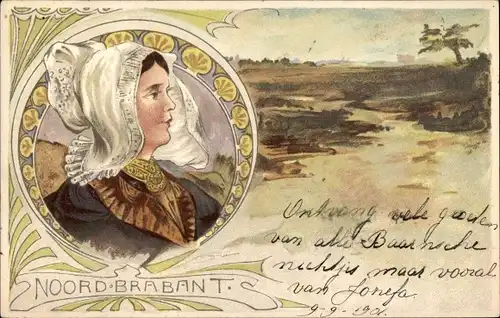 NOORD-BRABANT.
Ontvang vele groeten
van alle Baarnsche
nichtjes maar vooral
van Josefa.
9-9-1901.